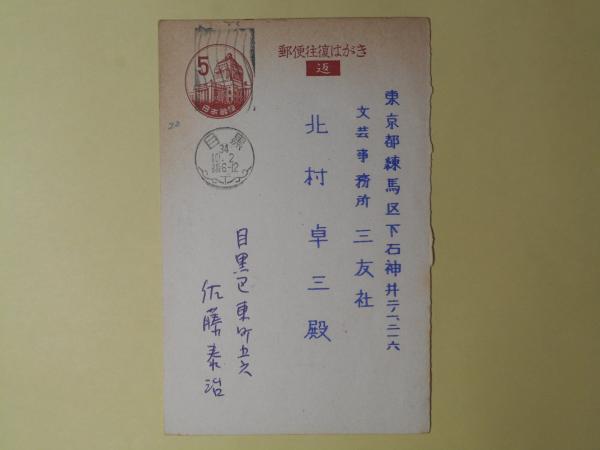 郵便往復はがき
返
5
日本郵便
目黒
34
10.2
后6-12
東京都練馬区下石神井二ノ一、二一六
文芸事務所 三友社
北村卓三殿
目黒区東町五六
佐藤泰治